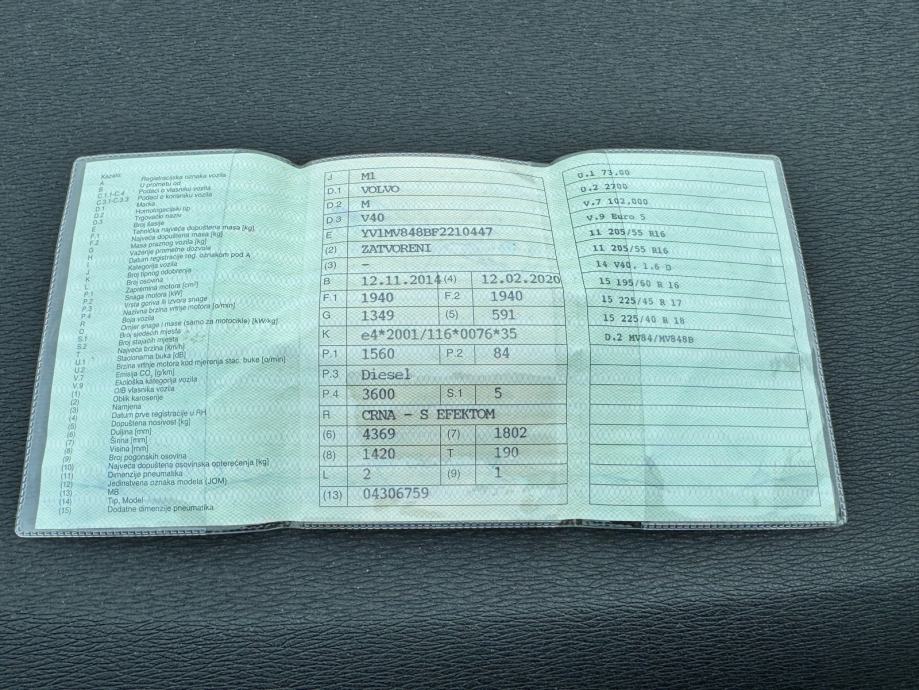 Kazalo:
A Registracijska oznaka vozila
B U prometu od
C.1.1-C.4 Podaci o vlasniku vozila
C.3.1-C.3.3 Podaci o korisniku vozila
D.1 Marka
D.2 Homologacijski tip
D.3 Trgovački naziv
E Broj šasije
F.1 Tehnička najveća dopuštena masa [kg]
F.2 Najveća dopuštena masa [kg]
G Masa praznog vozila [kg]
H Važenje prometne dozvole
I Datum registracije reg. oznakom pod A
J Kategorija vozila
K Broj tipnog odobrenja
L Broj osovina
P.1 Zapremina motora [cm³]
P.2 Snaga motora [kW]
P.3 Vrsta goriva ili izvora snage
P.4 Nazivna brzina vrtnje motora [o/min]
R Boja vozila
Q Omjer snaga i mase (samo za motocikle) [kW/kg]
S.1 Broj sjedećih mjesta
S.2 Broj stajaćih mjesta
T Najveća brzina [km/h]
U.1 Stacionarna buka [dB]
U.2 Brzina vrtnje motora kod mjerenja stac. buke [o/min]
V.7 Emisija CO₂ [g/km]
V.9 Ekološka kategorija vozila
(1) OIB vlasnika vozila
(2) Oblik karoserije
(3) Namjena
(4) Datum prve registracije u RH
(5) Dopuštena nosivost [kg]
(6) Duljina [mm]
(7) Širina [mm]
(8) Visina [mm]
(9) Broj pogonskih osovina
(10) Najveća dopuštena osovinska opterećenja [kg]
(11) Dimenzije pneumatika
(12) Jedinstvena oznaka modela (JOM)
(13) MB
(14) Tip, Model
(15) Dodatne dimenzije pneumatika
J M1
D.1 VOLVO
D.2 M
D.3 V40
E YV1MV848BF2210447
(2) ZATVORENI
(3) –
B 12.11.2014 (4) 12.02.2020
F.1 1940 F.2 1940
G 1349 (5) 591
K e4*2001/116*0076*35
P.1 1560 P.2 84
P.3 Diesel
P.4 3600 S.1 5
R CRNA - S EFEKTOM
(6) 4369 (7) 1802
(8) 1420 T 190
L 2 (9) 1
(13) 04306759
U.1 73,00
U.2 2700
V.7 102,000
V.9 Euro 5
11 205/55 R16
11 205/55 R16
14 V40, 1.6 D
15 195/60 R 16
15 225/45 R 17
15 225/40 R 18
D.2 MV84/MV848B